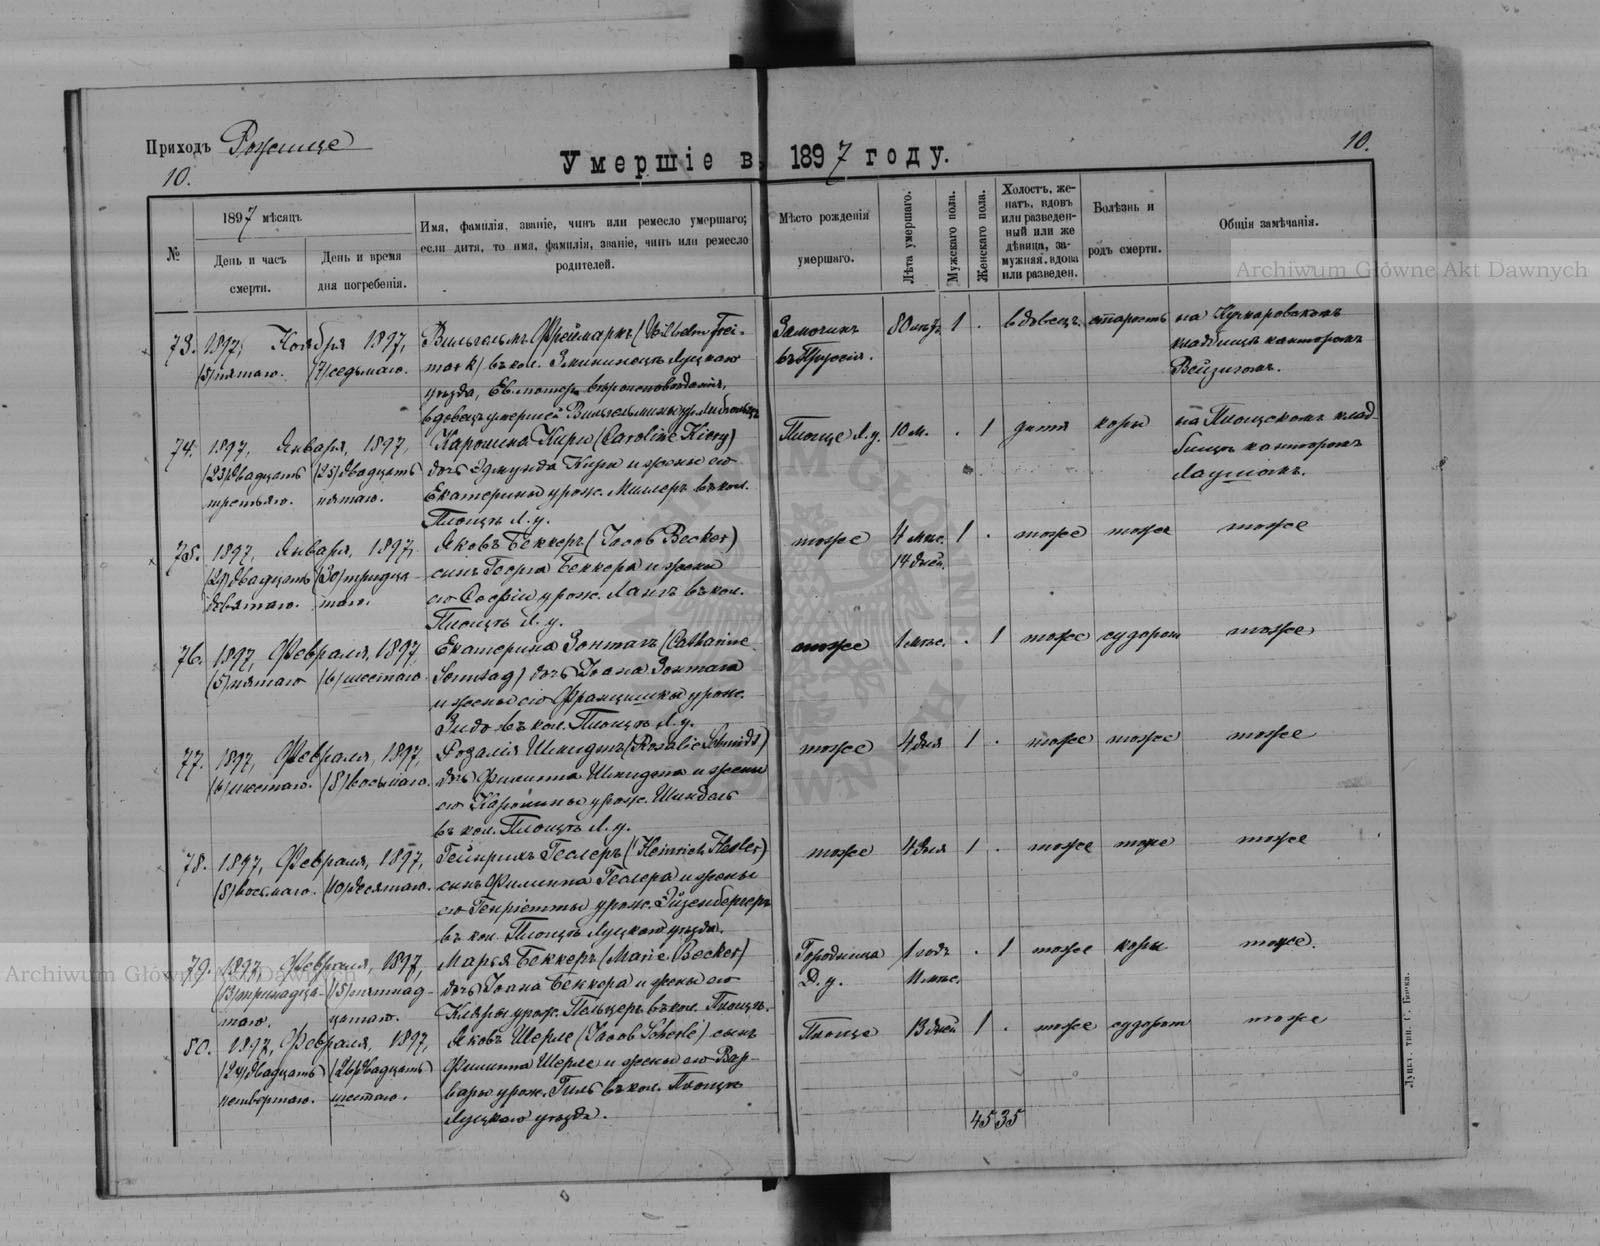 Приходъ Рожище
Умершіе въ 1897 году.
10.
10.
№
1897 мѣсяцъ
День и часъ смерти.
День и время дня погребенія.
Имя, фамилія, званіе, чинъ или ремесло умершаго;
если дитя, то имя, фамилія, званіе, чинъ или ремесло
родителей.
Мѣсто рожденія
умершаго.
Лѣта умершаго.
Мужскаго пола.
Женскаго пола.
Холостъ, же-
натъ, вдовъ
или разведен-
ный или же
дѣвица, за-
мужняя, вдова
или разведен.
Болѣзнь и
родъ смерти.
Общія замѣчанія.
Archiwum Główne Akt Dawnych
73. 1897, Ноября 1897, Вильгельмъ Фреймаркъ (Wilhelm Frei- Замочинъ 80 лѣтъ 1 . вдовецъ. старость на
(5) пятаго. (7) седьмаго. mark) въ кол. Луцкаго въ Пруссіи. кладбищѣ канторомъ
уѣзда, Ев. лютер. вѣроисповѣданія, Вейзигомъ.
вдовецъ умершей Вильгельмины урож.
74. 1897, Января, 1897, Каролина Кири (Caroline Kiery) Піонце Л. у. 10 м. . 1 дитя коры на Піонцскомъ клад-
(23) двадцать (25) двадцать дочь Эдмунда Кири и жены его бищѣ канторомъ
третьяго. пятаго. Екатерины урож. Миллеръ въ кол. Лаушомъ.
Піонцъ Л. у.
75. 1897, Января, 1897, Яковъ Беккеръ (Jacob Becker) тоже 4 мѣс. 1 . тоже тоже тоже
(29) двадцать (30) тридца- сынъ Георга Беккера и жены 14 дней.
девятаго. таго. его Софіи урож. Лангъ въ кол.
Піонцъ Л. у.
76. 1897, Февраля, 1897, Екатерина Зонтагъ (Catharine тоже 1 мѣс. . 1 тоже судорог тоже
(5) пятаго (6) шестаго. Sonntag) дочь Іоана Зонтага
и жены его Францишки урож.
въ кол. Піонцъ Л. у.
77. 1897, Февраля, 1897, Розалія Шмидтъ (Rosalie Schmidt) тоже 4 дня 1 . тоже тоже тоже
(6) шестаго. (8) восьмаго. дочь Филиппа Шмидта и жены
его Каролины урож. Шиндель
въ кол. Піонцъ Л. у.
78. 1897, Февраля, 1897, Гейнрихъ Геслеръ (Heinrich Hesler) тоже 4 дня 1 . тоже тоже тоже
(8) восьмаго. (10) десятаго. сынъ Филиппа Геслера и жены
его Генріетты урож. Эйзенбергеръ
въ кол. Піонцъ Луцкаго уѣзда.
79. 1897, Февраля, 1897, Марья Беккеръ (Marie Becker) Городница 1 годъ . 1 тоже коры тоже.
(13) тринадца- (15) пятнад- дочь Іоана Беккера и жены его Д. у. 11 мѣс.
таго. цатаго. Клары урож. Пельцеръ въ кол. Піонцъ.
Archiwum Główne Akt Dawnych
80. 1897, Февраля, 1897, Яковъ Шерле (Jacob Scherle) сынъ Піонце 13 дней 1 . тоже судорог тоже
(24) двадцать (26) двадцать Филиппа Шерле и жены его Вар-
четвертаго. шестаго. вары урож. Гиль въ кол. Піонцъ
Луцкаго уѣзда.
45 35
Луцкъ, тип. Г. Бойка.